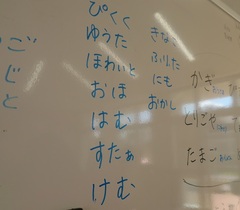 ぴくく
ゆうた
ほわいと
おほ
はむ
すたぁ
けむ
きなこ
ふりた
にも
おかし
ご
じ
と
かぎ
とりごや
たまご